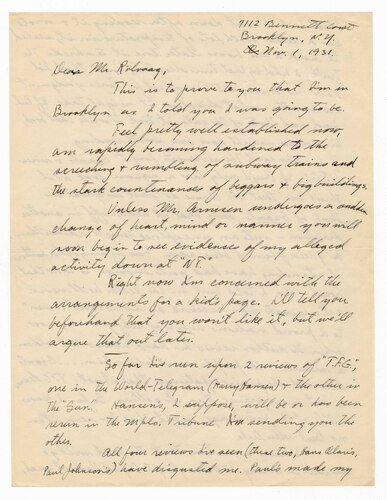 7112 Bennett Court
Brooklyn, N.Y.
Nov. 1, 1931.
Dear Mr. Rolvaag,
This is to prove to you that I'm in
Brooklyn as I told you I was going to be.
Feel pretty well established now,
am rapidly becoming hardened to the
screeching & rumbling of subway trains and
the stark countenances of beggars & big buildings.
Unless Mr. Arnesen undergoes a sudden
change of heart, mind or manner you will
soon begin to see evidences of my alleged
activity down at "NT."
Right now I'm concerned with the
arrangements for a kid's page. I'll tell you
beforehand that you won't like it, but we'll
argue that out later.
So far I've run upon 2 reviews of "T.F.G",
one in the World-Telegram (Harry Hansen) & the other in
the "Sun". Hansen's, I suppose, will be or has been
rerun in the Mpls. Tribune. I'm sending you the
other.
All four reviews I've seen (these two, Hans Olav's,
Paul Johnson's) have disgusted me. Paul's made my